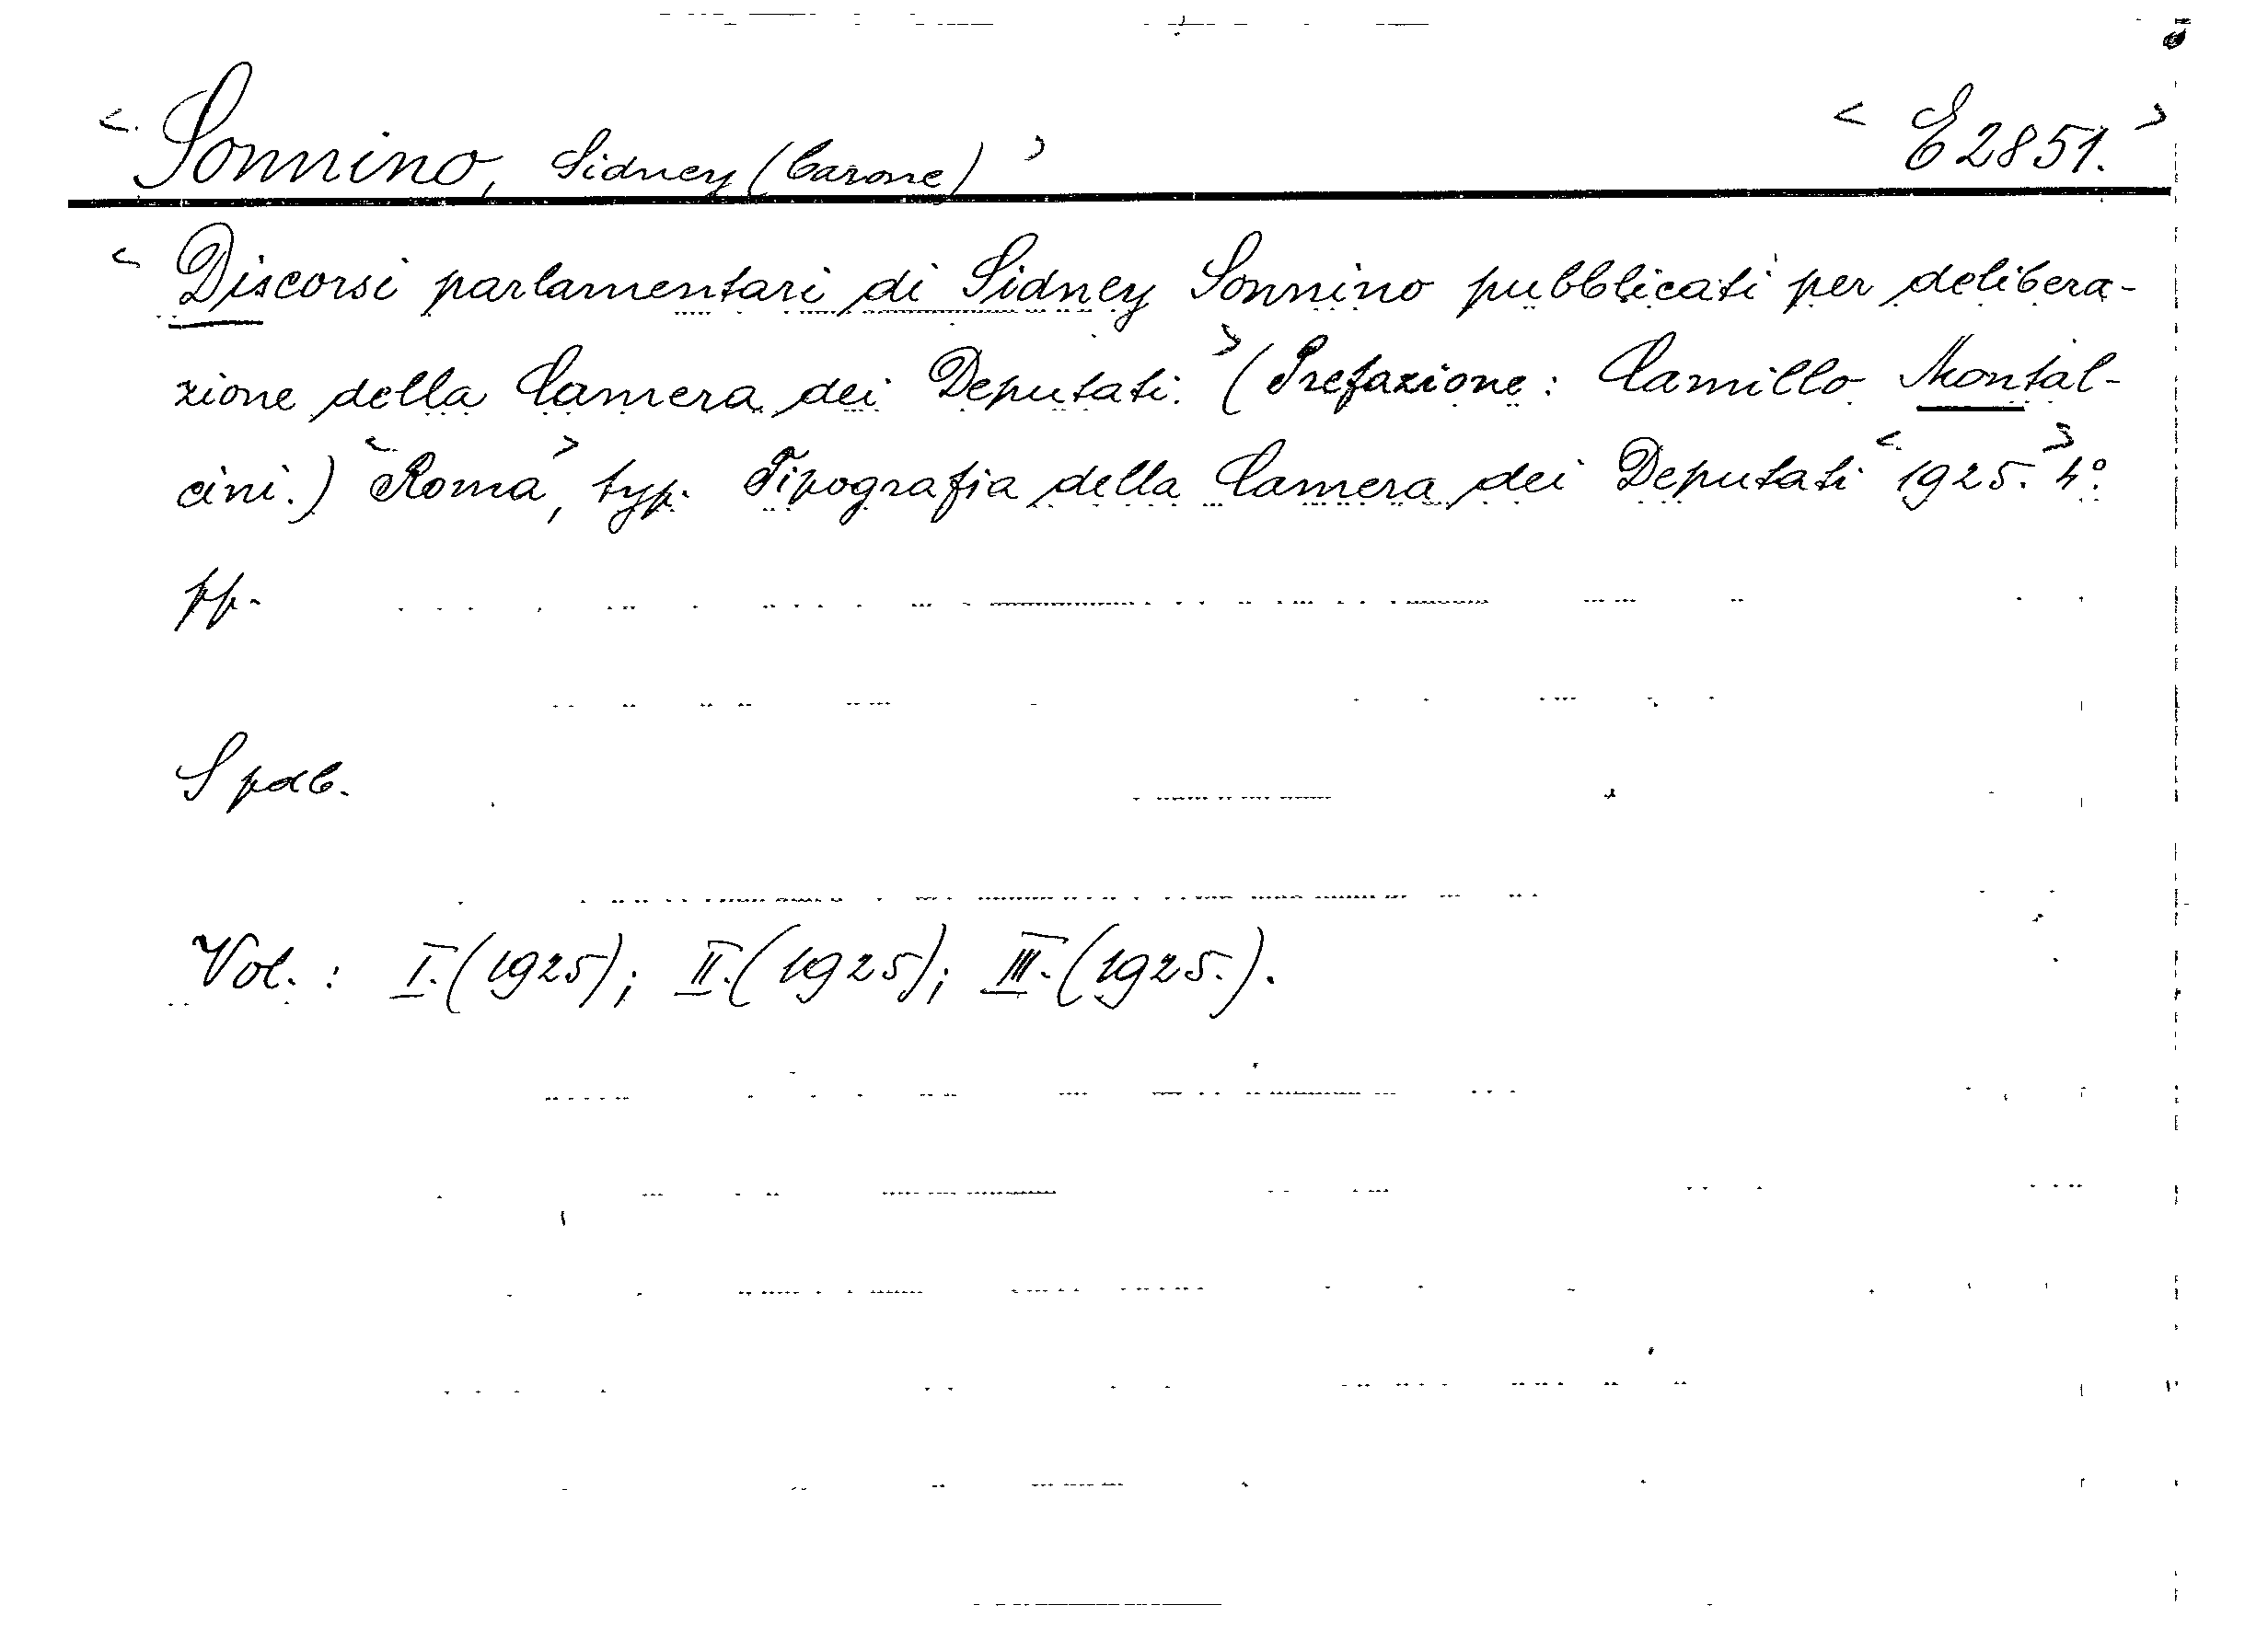 < Sonnino, Sidney (Barone) > < E 2851. >
< Discorsi parlamentari di Sidney Sonnino pubblicati per delibera-
zione della Camera dei Deputati. > (Prefazione: Camillo Montal-
cini.) < Roma >, typ. Tipografia della Camera dei Deputati < 1925. > 4°
pp.
Vol. : I. (1925); II. (1925); III. (1925.).